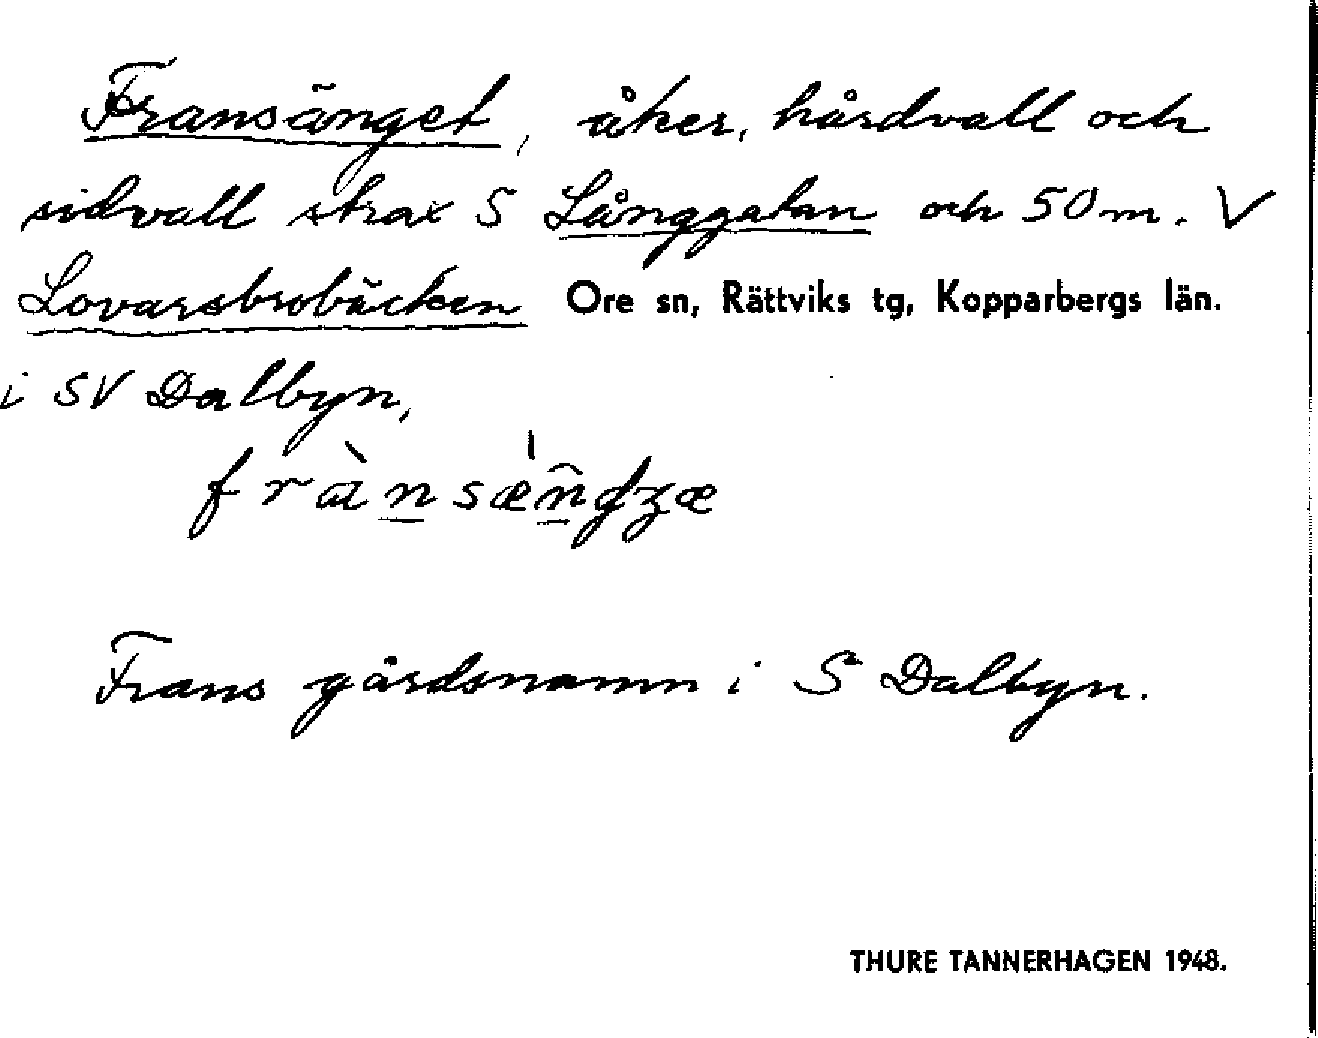 Fransänget, åker, hårdvall och
sidvall strax S Långgatan och 50 m. V
Lovarsbrobäcken Ore sn, Rättviks tg, Kopparbergs län.
i SV Dalbyn,
Frans gårdsnamn i S Dalbyn.
THURE TANNERHAGEN 1948.